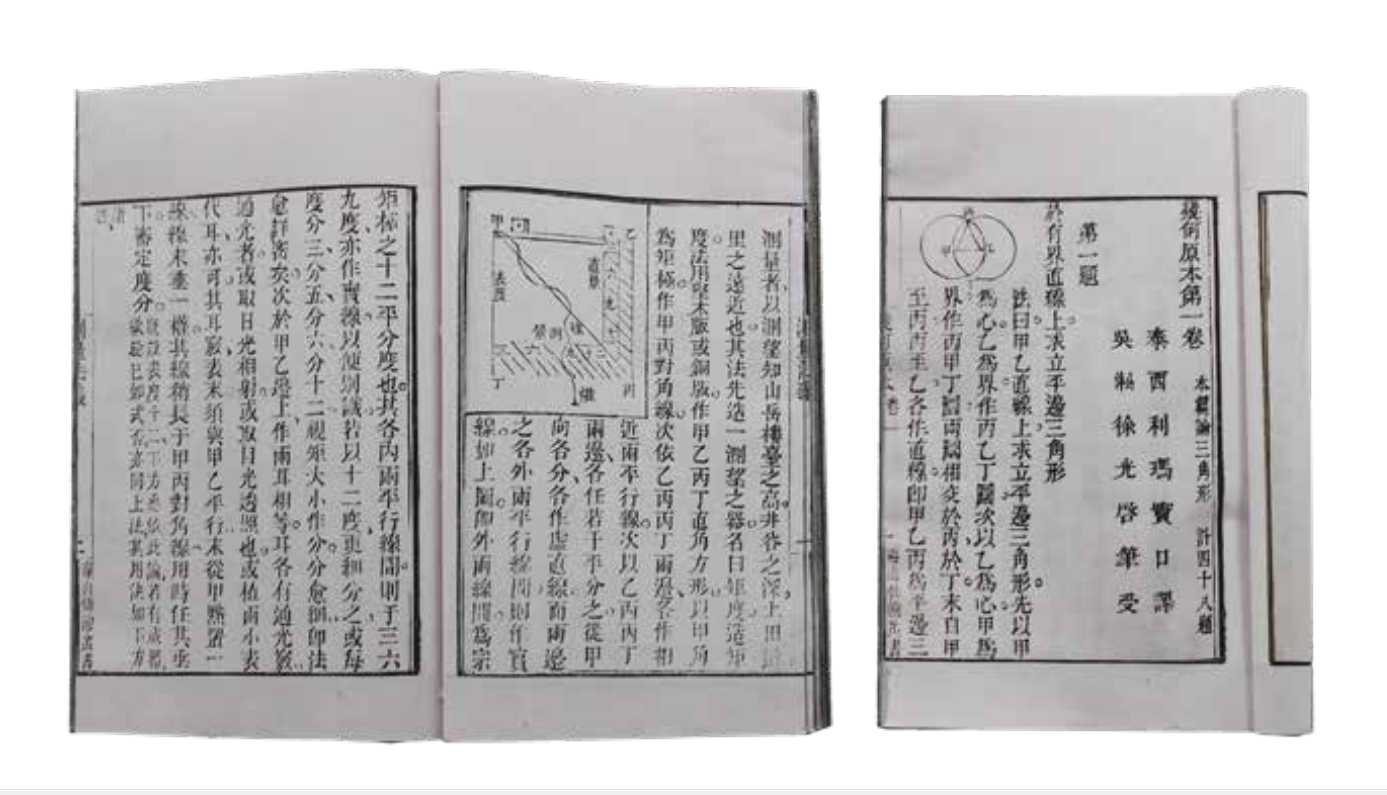 幾何原本第一卷 本篇論三角形 計四十八題
泰西利瑪竇口譯
吳淞徐光啓筆受
第一題
於有界直線上求立平邊三角形
法曰甲乙直線上求立平邊三角形先以甲
為心乙為界作丙乙丁圜次以乙為心甲為
界作丙甲丁圜兩圜相交於丙於丁末自甲
至丙丙至乙各作直線即甲乙丙為平邊三
丙
甲 乙
測量者以測望知山岳樓臺之高井谷之深土田道
里之遠近也其法先造一測望之器名曰矩度造矩
度法用堅木版或銅版作甲乙丙丁直角方形以甲角
為矩極作甲丙對角線次依乙丙丙丁兩邊各作相
近兩平行線次以乙丙丙丁
兩邊各任若干平分之從甲
向各分各作虛直線而兩邊
之各外兩平行線間則作實
線如上圖即外兩線間為宗
甲 乙
直景
倒景
丁 丙
權
矩極之十二平分度也其各內兩平行線間則于三六
九度亦作實線以便別識若以十二度更細分之或每
度分三分五分六分十二視矩大小作分分愈細即法
愈詳密矣次於甲乙邊上作兩耳相等耳各有通光竅
通光者或取日光相射或取目光透照也或植兩小表
代耳亦可其耳竅表末須與甲乙平行末從甲點置一
線線末垂一權其線稍長于甲丙對角線用時任其垂
下審定度分既設表度十二下方悉依此論若有成器
欲驗已如式否亦同上法其用法如下方
諸題